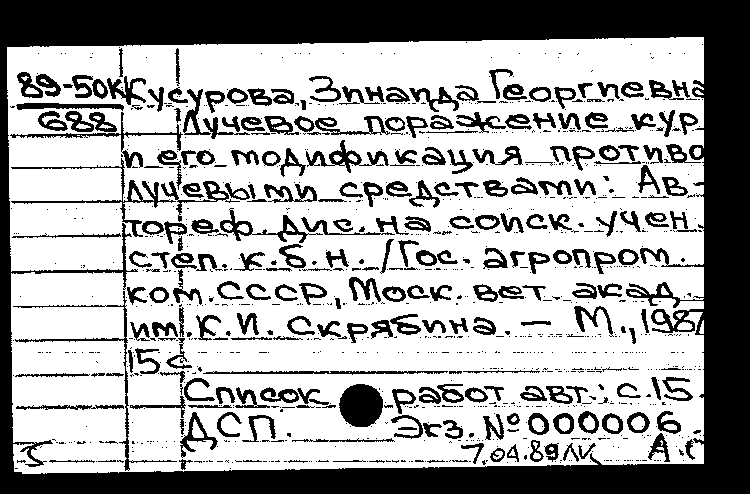 89-50К Кусурова, Зинаида Георгиевна
688 Лучевое поражение кур
и его модификация противо
лучевыми средствами: Ав-
тореф. дис. на соиск. учен.
степ. к.б.н. / Гос. агропром.
ком. СССР, Моск. вет. акад.
им. К.И. Скрябина. — М., 1987
15 с.
Список работ авт.: с. 15.
ДСП. Экз. № 000006.
7.04.89